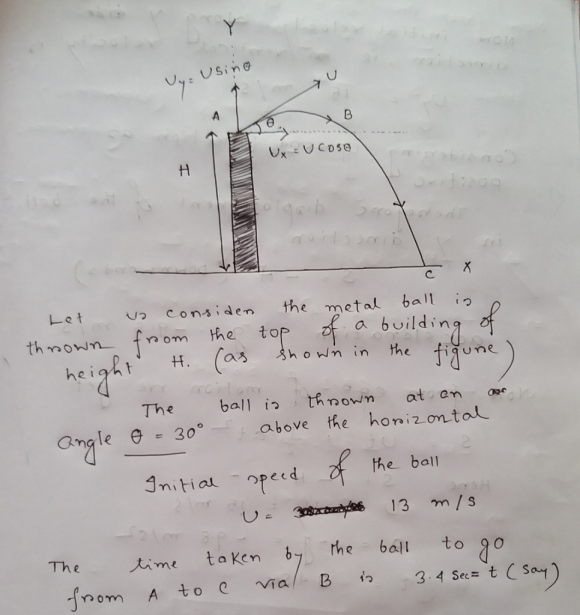 Y
Uy = U sin θ
U
A
θ
B
Ux = U COSθ
H
C
X
Let us consider the metal ball is
thrown from the top of a building of
height H. (as shown in the figure)
The ball is thrown at an
angle θ = 30° above the horizontal
Initial speed of the ball
U = 13 m/s
The time taken by the ball to go
from A to C via B is 3.4 Sec = t (say)